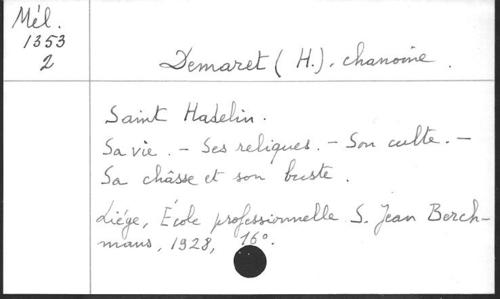 Mél.
1353
2
Demaret (H.), chanoine.
Saint Hadelin.
Sa vie. – Ses reliques. – Son culte. –
Sa châsse et son buste.
Liége, École professionnelle S. Jean Berch-
mans, 1928, 16°.